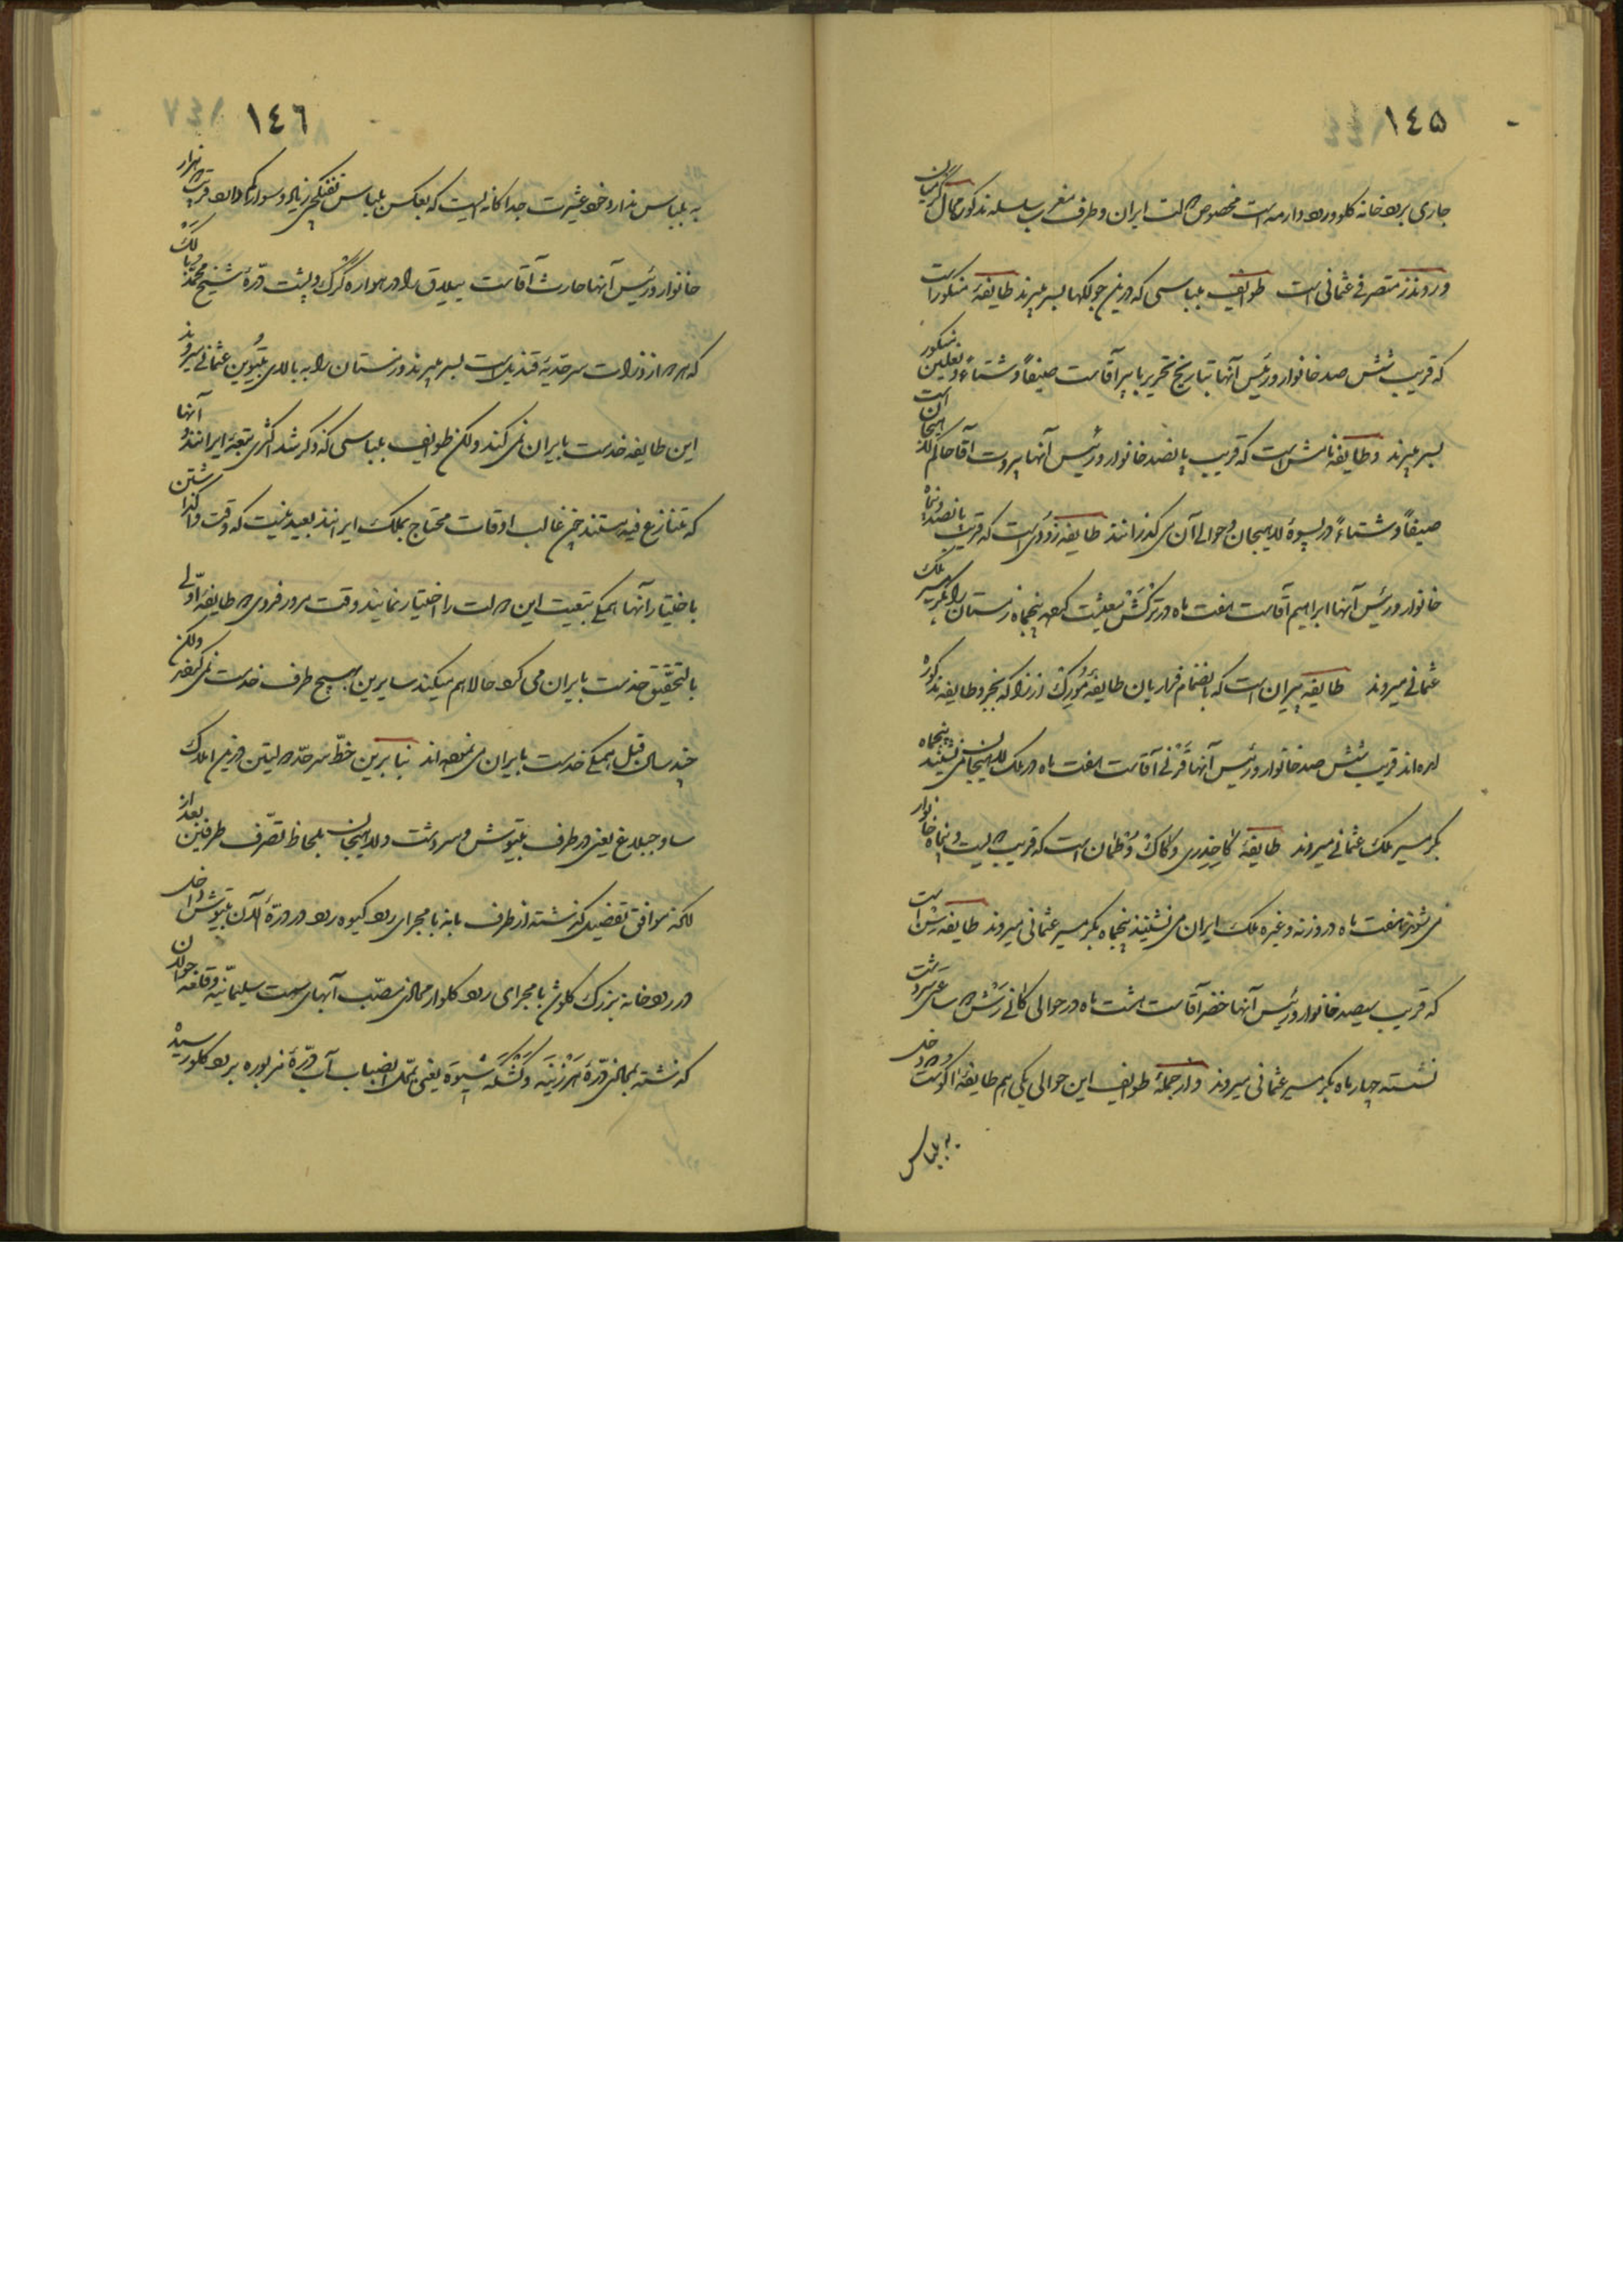 ١٤٥
جاری برودخانه کلوورود وارمه است مخصوص دولت ایران و طرف مغرب سلسله مذکور بمال گرمیان
و روندز متصرفی عثمانی است طوایف بلباسی که درین جولکها بسر میبرند طایفهٔ منکور است
که قریب شش صد خانوار و رئیس آنها بتاریخ تحریر بایر آقاست صیفاً و شتاءً در بعلین منکور
بسر میبرند و طایفه مامش است که قریب پانصد خانوار و رئیس آنها پیروت آقا حاکم لاهیجان است
صیفاً و شتاءً در پسوهٔ لاهیجان و حوالی آن می گذرانند طایفه زوُدی است که قریب پانصد و پنجاه
خانوار و رئیس آنها ابراهیم آقاست هفت ماه در ترکش بعلیت بوده پنجماه زمستان را بگرمسیر ملک
عثمانی میروند طایفه پیران است که بانضمام فراریان طایفهٔ مُورک از نزاکه بخیر و طایفه مذکوره
آمده‌اند قریب شش صد خانوار و رئیس آنها قَرنی آقاست هفت ماه در ملک لاهیجان می نشینند پنجماه
بگرمسیر ملک عثمانی میروند طایفهٔ کاخِدری و کاک و طمان است که قریب دویست و پنجاه خانوار
می شوند هفت ماه در وزنه و غیره ملک ایران می نشینند پنجماه بگرمسیر عثمانی میروند طایفه رش است
که قریب سیصد خانوار و رئیس آنها خضر آقاست هشت ماه در حوالی کانی رش و ساعر سردشت
نشسته چهار ماه بگرمسیر عثمانی میروند و از جملهٔ طوایف این حوالی یکی هم طایفهٔ اکو است که دخلی
به بلباس
١٤٦
به بلباس ندارد خود عشیرت جداگانه ایست که بعکس بلباس تفنگچی زیاد و سوار کم دارد قریب دو هزار
خانوار و رئیس آنها حارث آقاست ییلاق را در هواره گَرگ و پشت درّهٔ شیخ محمد و بالَک
که هر دو از ذرات سرحدیهٔ قندیل است بسر میبرند و زمستان را به بالای بیتوین عثمانی میروند
این طایفه خدمت بایران نمی کند ولکن طوایف بلباسی که ذکر شد اکثری تبعهٔ ایرانند و آنها
که متنازع فیه هستند چون غالب اوقات محتاج بملک ایرانند بعید نیست که وقت واگذاشتن
باختیار آنها همگی تبعیت این دولت را اختیار نمایند وقت مرور فدوی دو طایفهٔ اولی
بالتحقیق خدمت بایران می کرد حالا هم میکند سایرین بهیچ طرف خدمت نمی کردند ولکن
چند سال قبل همگی خدمت بایران می نموده اند بنابرین خطّ سرحدّ دولتین درین املاک
ساوجبلاغ یعنی در طرف بیتوش و سردشت و لاهیجان بلحاظ تصرّف طرفین بعد از
آنکه موافق تفصیل گذشته از طرف بانه با مجرای رود کیوه رود در درّهٔ آلان بیتوش داخل
در رودخانه بزرگ کلوش با مجرای رود کلو از محاذی مصبّ آبهای سمت سلیمانیّه و قلعه جوالان
گذشته بمحاذی درّهٔ هَرزنیَه و کَشکَه شیوَه یعنی بمحل انضباب آب درّهٔ مزبوره برود کلو رسید